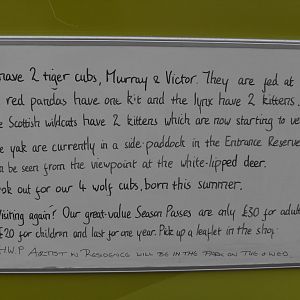 have 2 tiger cubs, Murray & Victor. They are fed at
red pandas have one kit and the lynx have 2 kittens.
e Scottish wildcats have 2 kittens which are now starting to ve
e yak are currently in a side-paddock in the Entrance Reserve
n be seen from the viewpoint at the white-lipped deer.
ok out for our 4 wolf cubs, born this summer.
Visiting again? Our great-value Season Passes are only £30 for adult
£20 for children and last for one year. Pick up a leaflet in the shop
H.W.P ARTIST IN RESIDENCE WILL BE IN THE PARK ON THE WED